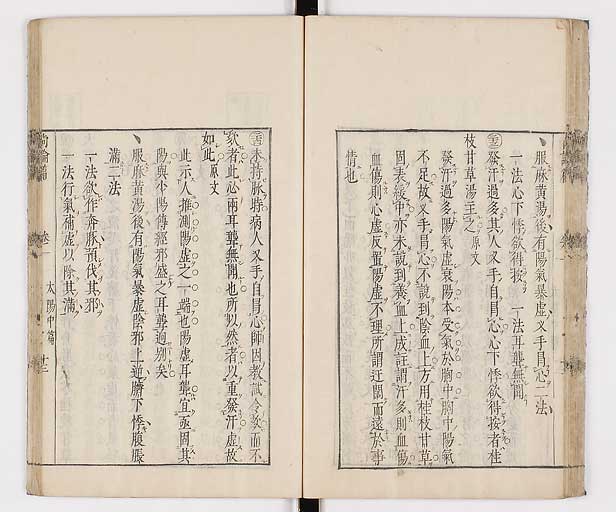 服麻黃湯後有陽氣暴虛叉手自冒心二法
一法心下悸欲得按 一法耳聾無聞
發汗過多其人叉手自冒心心下悸欲得按者桂
枝甘草湯主之原文
發汗過多陽氣虛衰陽本受氣於胸中胸中陽氣
不足故叉手冒心不說到陰血上方用桂枝甘草
固表緩中亦未說到養血上成註謂汗多則血傷
血傷則心虛反置陽虛不理所謂迂闊而遠於事
情也
未持脉時病人叉手自冒心師因教試令欬而不
欬者此必兩耳聾無聞也所以然者以重發汗虛故
如此原文
此示人推測陽虛之一端也陽虛耳聾宜亟固其
陽與少陽傳經邪盛之耳聾迥別矣
服麻黃湯後有陽氣暴虛陰邪上逆臍下悸腹脹
滿二法
一法欲作奔豚預伐其邪
一法行氣補虛以除其滿
尚論篇 卷一 太陽中篇